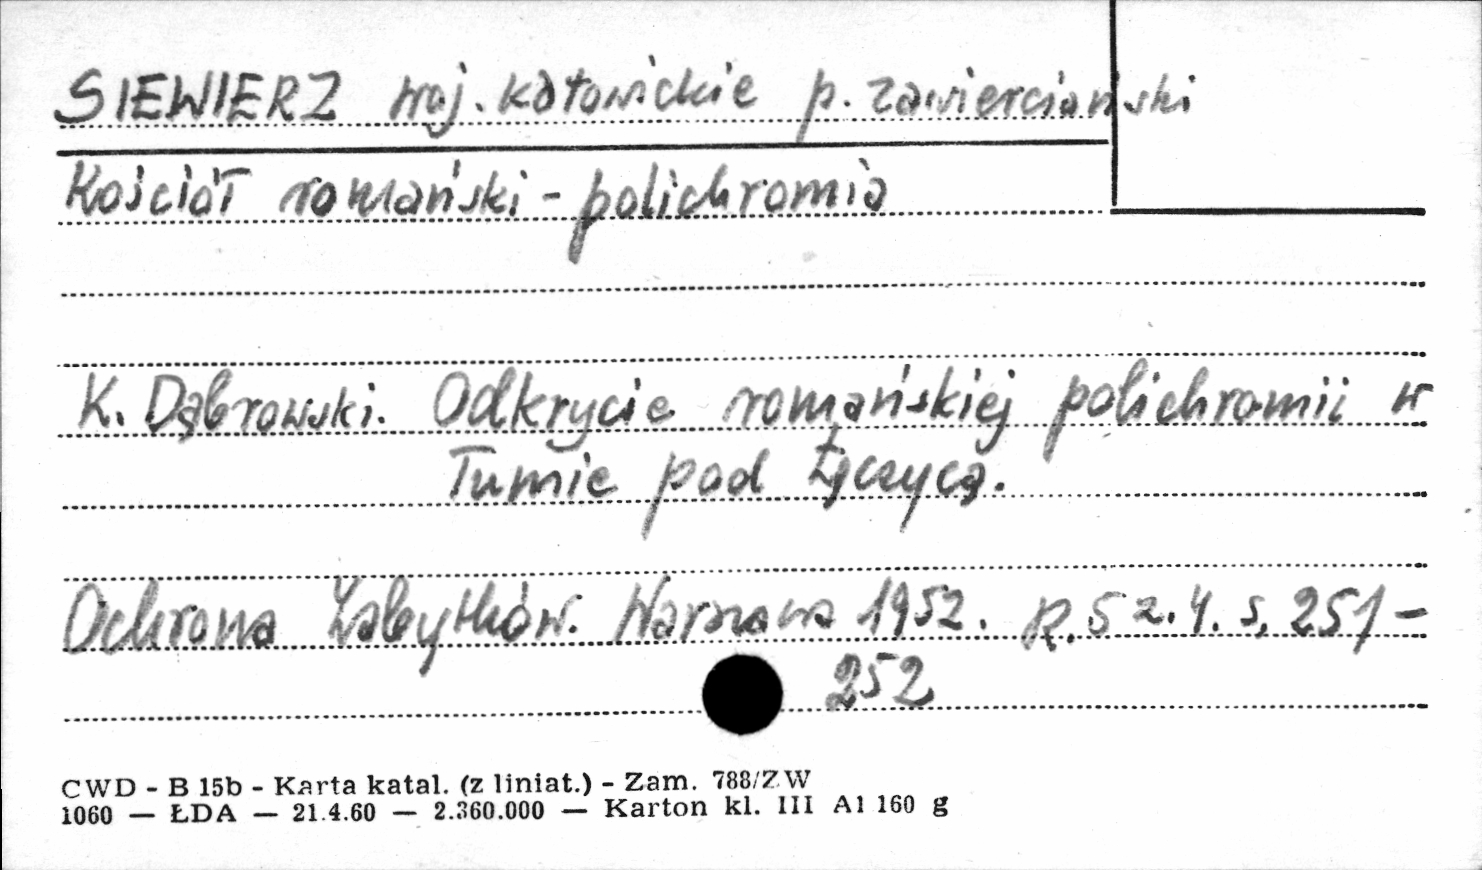 SIEWIERZ woj. katowickie p. zawierciański
Kościół romański - polichromia
K. Dąbrowski. Odkrycie romańskiej polichromii w
Tumie pod Łęczycą.
Ochrona Zabytków. Warszawa 1952. R. 5 z. 4. s. 251-
252
CWD - B 15b - Karta katal. (z liniat.) - Zam. 788/ZW
1060 — ŁDA — 21.4.60 — 2.360.000 — Karton kl. III A1 160 g